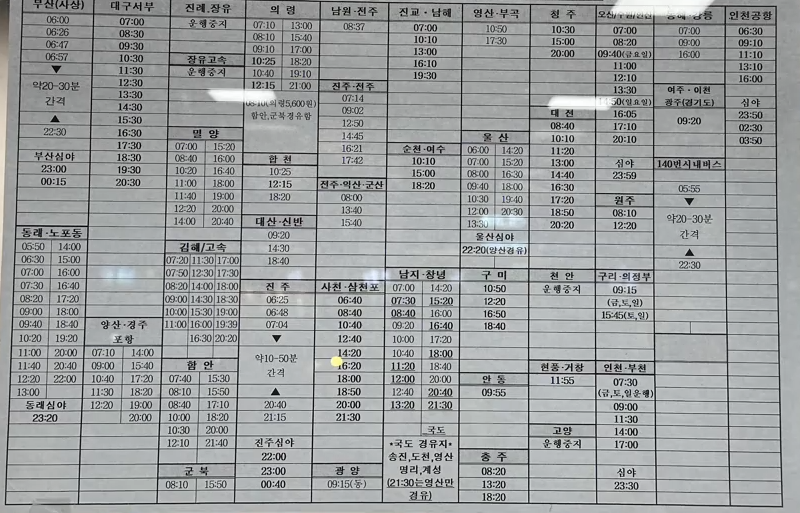 부산(사상)
06:00
06:26
06:47
06:57
▼
약20-30분
간격
▲
22:30
부산심야
23:00
00:15
동래·노포동
05:50 14:00
06:30 15:00
07:00 16:00
07:30 16:40
08:20 17:20
09:00 18:00
09:40 18:40
10:20 19:20
11:00 20:00
11:40 20:40
12:20 22:00
13:00
동래심야
23:20
대구서부
07:00
08:30
09:30
10:30
11:30
12:30
13:30
14:30
15:30
16:30
17:30
18:30
19:30
20:30
양산·경주
포항
07:10 14:00
09:00 15:40
10:40 17:20
11:30 18:20
12:20 19:00
20:00
진례.장유
운행중지
장유고속
운행중지
밀 양
07:00 15:20
08:40 16:00
10:20 16:40
11:00 18:00
11:40 19:00
12:20 20:00
14:00 20:40
김해/고속
07:20 11:30 17:00
07:50 12:30 17:30
08:20 14:00 18:00
09:00 14:30 18:30
10:00 15:30 19:00
11:00 16:00 19:39
16:30 20:20
함 안
07:40 15:30
08:10 15:50
08:40 17:10
10:00 18:20
10:30 20:00
12:10 21:40
군 북
08:10 15:50
의 령
07:10 13:00
08:30 15:40
09:10 17:00
10:25 18:20
10:40 19:10
12:15 21:00
08:10(의령5,600원)
함안,군북경유함
합 천
10:25
12:15
18:20
대산·신반
09:20
14:30
18:40
진 주
06:25
06:48
07:04
▼
약10-50분
간격
▲
20:40
21:15
진주심야
22:00
23:00
00:40
남원·전주
08:37
진주·전주
07:14
09:02
12:50
14:45
16:21
17:42
전주·익산·군산
08:00
13:40
15:40
사천·삼천포
06:40
08:40
10:40
12:40
14:20
16:20
18:00
18:50
20:00
21:30
광 양
09:15(동)
진교·남해
07:00
10:10
13:00
16:10
19:30
순천·여수
10:10
15:00
18:20
남지·창녕
07:00 14:20
07:30 15:20
08:40 16:00
09:20 16:40
10:00 17:20
10:40 18:00
11:20 18:40
12:00 20:00
12:40 20:40
13:20 21:30
국도
*국도 경유지*
송진,도천,영산
명리,계성
(21:30는영산만
경유)
영산·부곡
10:50
17:30
울 산
06:00 14:20
07:00 15:20
08:00 16:30
09:40 18:00
10:30 19:40
12:00 20:30
13:30
울산심야
22:20(양산경유)
구 미
10:50
12:20
16:50
18:40
안 동
09:55
충 주
08:20
13:20
18:20
청 주
10:30
15:00
20:00
대 전
08:40
10:10
11:20
13:00
14:40
16:30
17:20
18:50
20:20
천 안
운행중지
현풍·거창
11:55
고양
운행중지
07:00
08:20
09:40(금요일)
11:00
12:10
13:30
(일요일)
16:05
17:10
20:10
심야
23:59
원주
08:10
12:20
구리·의정부
09:15
(금,토,일)
15:45(토,일)
인천·부천
07:30
(금,토,일운행)
09:00
11:30
14:00
17:00
심야
23:30
07:00
09:00
16:00
여주·이천
광주(경기도)
09:20
140번시내버스
05:55
▼
약20-30분
간격
▲
22:30
인천공항
06:30
09:10
11:10
13:10
16:00
심야
23:50
02:30
03:50